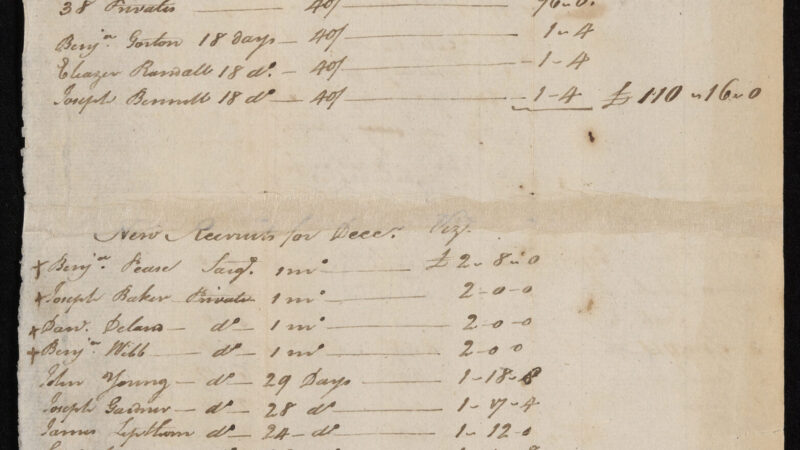 38 Privates — 40/ — 76-0.
Benjᵃ Gorton 18 days — 40/ — 1-4
Eleazer Randall 18 dº. — 40/ — 1-4
Joseph Bennett 18 dº — 40/ — 1-4 £ 110 " 16 " 0
New Recruits for Decer. Viz.
+ Benjᵃ Pease Sarjt. 1 mº — £ 2 " 8 " 0
+ Joseph Baker Private 1 mº — 2-0-0
+ Danl. — dº — 1 mº — 2-0-0
+ Benjᵃ Webb — dº — 1 mº — 2-0-0
John Young — dº — 29 Days — 1-18-8
Joseph Gardner — dº — 28 dº — 1-17-4
James — dº — 24 dº — 1-12-0